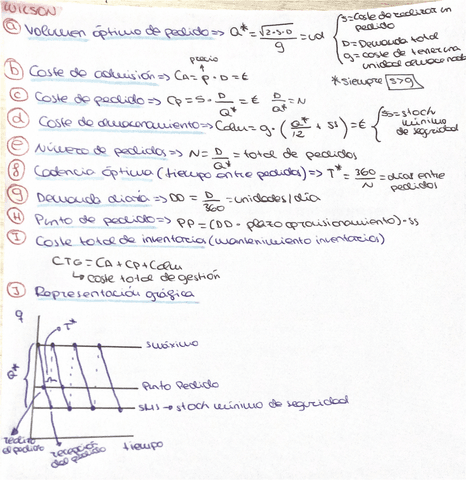 WILSON
a) Volumen óptimo de pedido => Q* = √2·S·D / g = ud
S = Coste de realizar un pedido
D = Demanda total
g = coste de tener una unidad almacenada
* siempre S>g
b) Coste de adquisición => CA = p · D = €
precio
c) Coste de pedido => Cp = S · D/Q* = € D/Q* = N
d) Coste de almacenamiento => Calm = g · (Q*/12 + SS) = €
SS = stock mínimo de seguridad
e) Número de pedidos => N = D/Q* = total de pedidos
8 Cadencia óptima (tiempo entre pedidos) => T* = 360/N = días entre pedidos
g) Demanda diaria => DD = D/360 = unidades/día
H Punto de pedido => PP = (DD · plazo aprovisionamiento) + SS
I Coste total de inventarios (mantenimiento inventarios)
CTG = CA + Cp + Calm
↳ coste total de gestión
J Representación gráfica
q
T*
Q*
Smáximo
Punto Pedido
SMS → stock mínimo de seguridad
realizo el pedido
recepción del pedido
tiempo